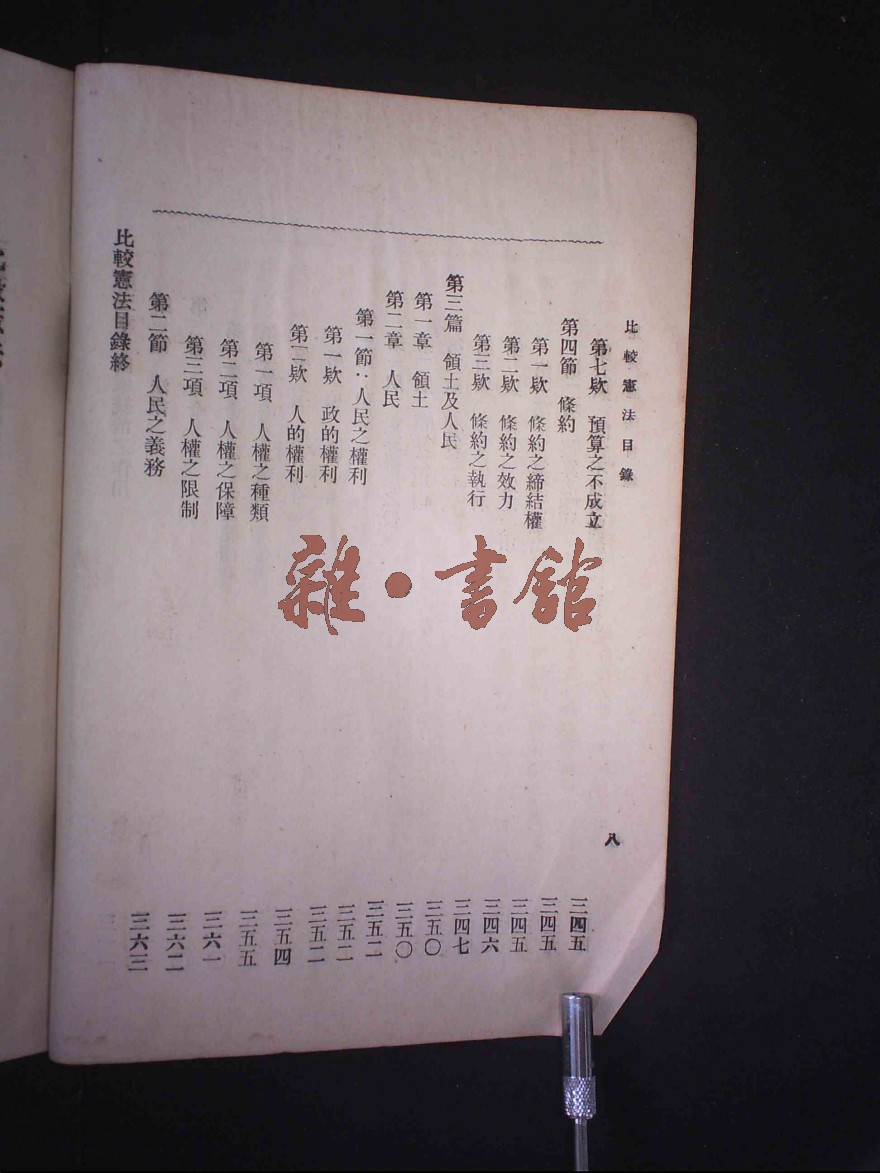 比較憲法目錄
八
第七欵 預算之不成立 三四五
第四節 條約 三四五
第一欵 條約之締結權 三四五
第二欵 條約之效力 三四六
第三欵 條約之執行 三四七
第三篇 領土及人民 三五〇
第一章 領土 三五〇
第二章 人民 三五二
第一節：人民之權利 三五二
第一欵 政的權利 三五二
第二欵 人的權利 三五四
第一項 人權之種類 三五五
第二項 人權之保障 三六一
第三項 人權之限制 三六二
第二節 人民之義務 三六三
比較憲法目錄終
雜·書館